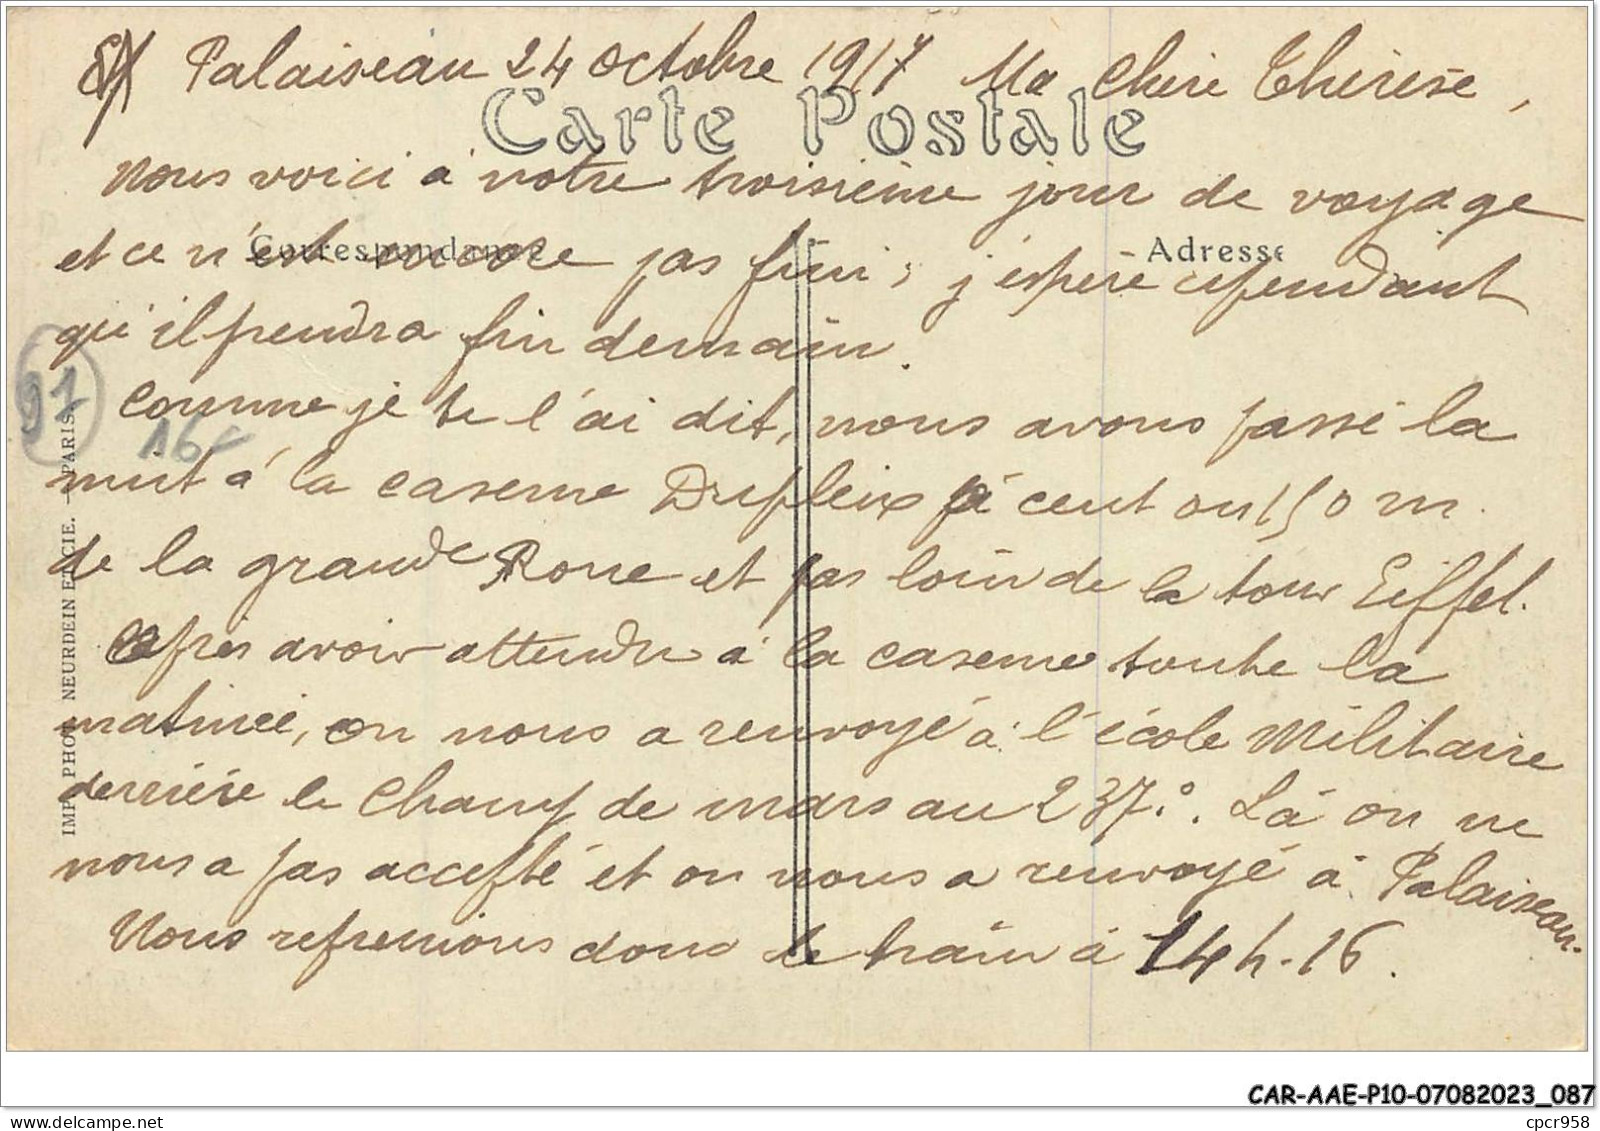 Palaiseau 24 octobre 1917 Ma chère Thérèse,
Carte Postale
Nous voici à notre troisième jour de voyage
Correspondance
Adresse
et ce n'est encore pas fini; j'espère cependant
qu'il prendra fin demain.
Comme je te l'ai dit, nous avons passé la
nuit à la caserne Dupleix à cent ou 150 m.
de la grande Roue et pas loin de la tour Eiffel.
Après avoir attendu à la caserne toute la
matinée, on nous a renvoyé à l'école Militaire
derrière le Champ de mars au 237e. Là on ne
nous a pas accepté et on nous a renvoyé à Palaiseau.
Nous reprenions donc le train à 14h.16.
91
16-
IMP. PHOT. NEURDEIN ET CIE. - PARIS.
CAR-AAE-P10-07082023_087
delcampe.net
cpcr958